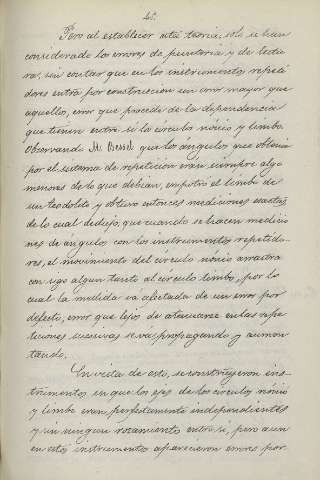 45.
Pero al establecer esta teoria, solo se han
considerado los errores de punteria y de lectu
ra, sin contar que en los instrumentos repeti
dores entra por construccion un error mayor que
aquellos, error que procede de la dependencia
que tienen entre si los circulos nónio y limbo.
Observando M. Bessel que los angulos que obtenia
por el sistema de repeticion eran siempre algo
menores de lo que debian, empotró el limbo de
un teodolito y obtuvo entonces mediciones exactas
de lo cual dedujo, que cuando se hacen medicio
nes de angulos con los instrumentos repetido-
res, el movimiento del circulo nónio arrastra
consigo algun tanto al circulo limbo, por lo
cual la medida va afectada de un error por
defecto, error que lejos de atenuarse en las repe
ticiones sucesivas se vá propagando y aumen
tando.
En vista de esto, se construyeron ins-
trumentos en que los ejes de los circulos nónio
y limbo eran perfectamente independientes
y sin ningun rozamiento entre si, pero aun
en estos instrumentos aparecieron errores por